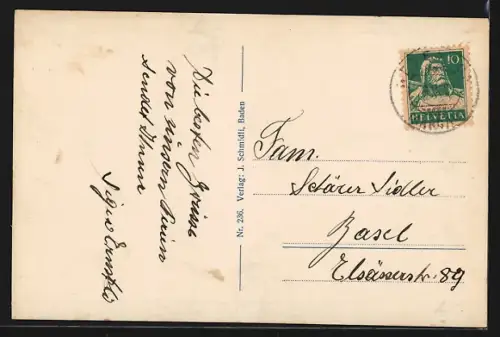 Die besten Grüsse
von unsern Ferien
sendet Ihnen
Nr. 236. Verlag: J. Schmidli, Baden
10
HELVETIA
Fam.
Schärer Sidler
Basel
Elsässerstr. 89